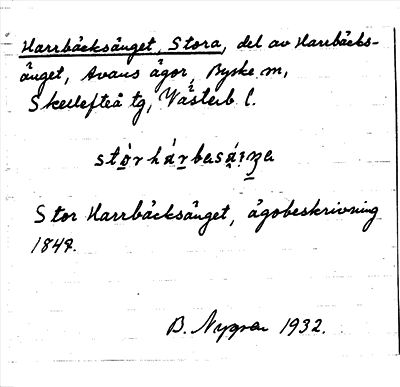 Harrbäcksänget, Stora, del av Harrbäcks-
änget, Avans ägor, Byske sn,
Skellefteå tg, Västerb. l.
Stor Harrbäcksänget, ägobeskrivning
184
B. Nygren 1932.